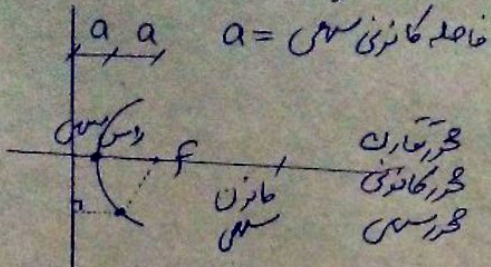 a a
a = فاصله کانونی سهمی
رأس سهمی
F
کانون
سهمی
محور تقارن
محور کانونی
محور سهمی